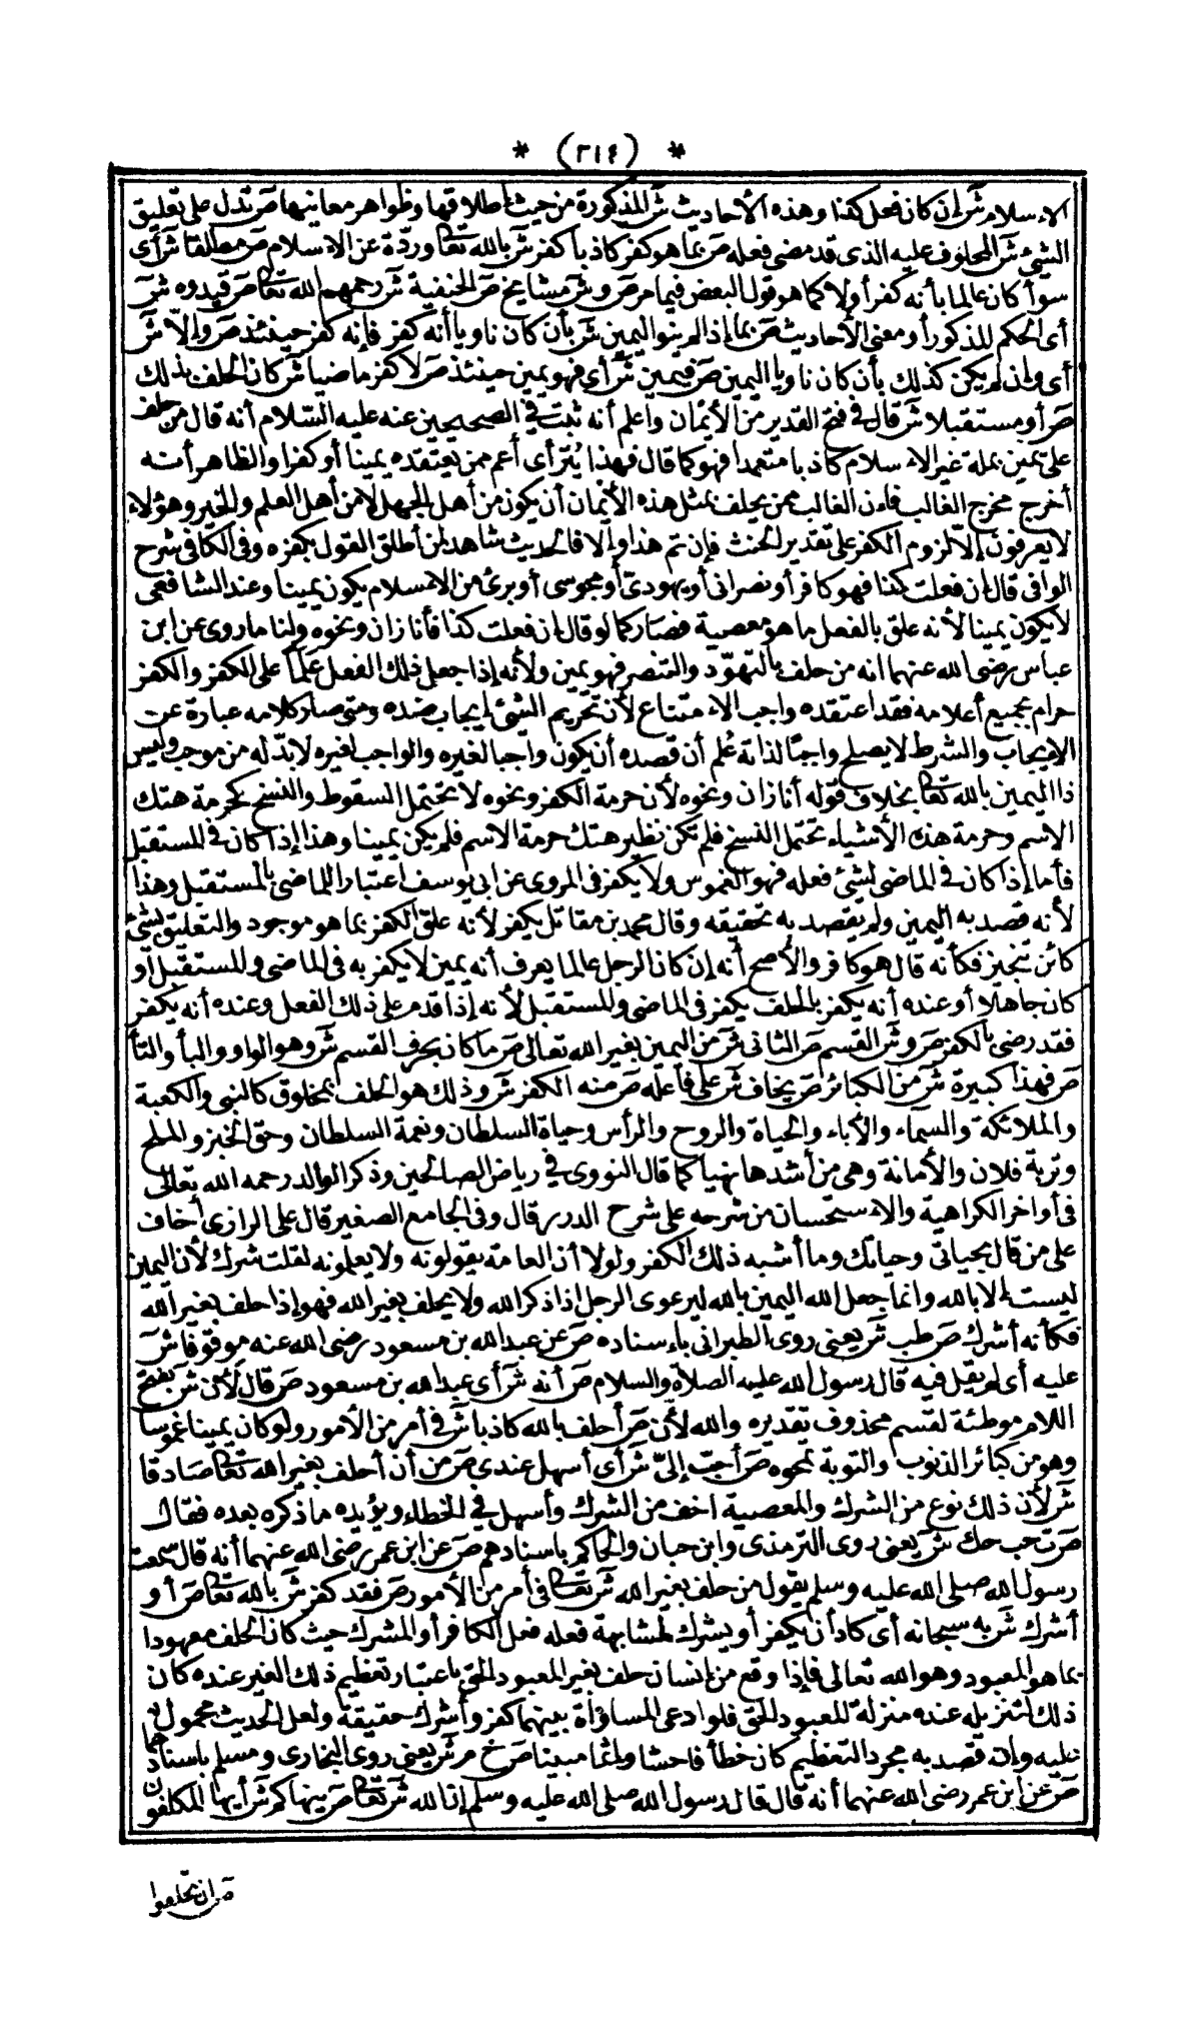 * (٣١٤) *
الإسلام ش إن كان فعل كذا وهذه الأحاديث ش المذكورة من حيث إطلاقها وظواهر معانيها ص تدل على تعليق
الشيئ ش المحلوف عليه الذى قد مضى فعله ص بما هو كفر كاذبا كفر ش بالله تعا وردّة عن الإسلام ص مطلقا ش أى
سوأ كان عالما بأنه كفر أولا كما هو قول البعض فيما مر ص و ش مشايخ ص الحنفية ش رحمهم الله تعا ص قيدوه ش
أى الحكم المذكور أو معنى الأحاديث ص بما إذا لم ينو اليمين ش بأن كان ناويا أنه كفر فإنه كفر حينئذ ص وإلّا ش
أى وإن لم يكن كذلك بأن كان ناويا اليمين ص فيمين ش أي فهو يمين حينئذ ص لا كفر ماضيا ش كان الحلف بذلك
ص أو مستقبلا ش قال في فتح القدير من الأيمان واعلم أنه ثبت في الصحيحين عنه عليه السلام أنه قال من حلف
على يمين بملة غير الإسلام كاذبا متعمدا فهو كما قال فهذا يُترأى أعم من يعتقده يمينا أو كفرا والظاهر أنه
أخرج مخرج الغالب فإن الغالب ممن يحلف بمثل هذه الأيمان أن يكون من أهل الجهل لا من أهل العلم والخير وهؤلاء
لا يعرفون إلّا لزوم الكفر على تقدير الحنث فإن تم هذا وإلا فالحديث شاهد لمن أطلق القول بكفره وفى الكافى شرح
الوافى قال إن فعلت كذا فهو كافر أو نصرانى أو يهودىّ أو مجوسى أو برئ من الإسلام يكون يمينا وعند الشافعى
لا يكون يمينا لأنه علق بالفعل ما هو معصية فصار كما لو قال إن فعلت كذا فأنا زان ونحوه ولنا ما روى عن ابن
عباس رضى الله عنهما انه من حلف بالتهوّد والتنصر فهو يمين ولأنه إذا جعل ذلك الفعل عَلَما على الكفر والكفر
حرام بجميع أعلامه فقد اعتقده واجب الامتناع لأن تحريم الشئ إيجاب ضده ومتى صار كلامه عبارة عن
الإيجاب والشرط لا يصلح واجبًا لذاته عُلم أن قصده أن يكون واجبا لغيره والواجب لغيره لا بدّ له من موجب وليس
ذا اليمين بالله تعا بخلاف قوله أنا زان ونحوه لأن حرمة الكفر ونحوه لا يحتمل السقوط والنسخ كحرمة هتك
الاسم وحرمة هذه الأشياء تحتمل النسخ فلم تكن نظير هتك حرمة الاسم فلم يكن يمينا وهذا إذا كان في المستقبل
فأما إذا كان في الماضى لشئ فعله فهو الغموس ولا يكفر فى المروى عن ابى يوسف اعتبار الماضى بالمستقبل وهذا
لأنه قصد به اليمين ولم يقصد به تحقيقه وقال محمد بن مقاتل يكفر لأنه علق الكفر بما هو موجود والتعليق بشئ
كائن تنجيز فكأنه قال هو كافر والأصح أنه إن كان الرجل عالما يعرف أنه يمين لا يكفر به فى الماضى والمستقبل أو
كان جاهلا أو عنده أنه يكفر بالحلف يكفر فى الماضى والمستقبل لأنه إذا قدم على ذلك الفعل وعنده أنه يكفر
فقد رضى بالكفر ص و ش القسم ص الثانى ش من اليمين بغير الله تعالى ص ما كان بحرف القسم ش وهو الواو والبأ والتأ
ص فهذا كبيرة ش من الكبائر ص يخاف ش على فاعله ص منه الكفر ش وذلك هو الحلف بمخلوق كالنبى والكعبة
والملائكة والسماء والأباء والحياة والروح والرأس وحياة السلطان ونعمة السلطان وحق الخبز والملح
وتربة فلان والأمانة وهى من أشدها نهيا كما قال النووى في رياض الصالحين وذكر الوالد رحمه الله تعالى
فى أواخر الكراهية والاستحسان من شرحه على شرح الدرر قال وفى الجامع الصغير قال على الرازى أخاف
على من قال بحياتى وحياتك وما أشبه ذلك الكفر ولولا أن العامة يقولونه ولا يعلمونه لقلت شرك لأن اليمين
ليست إلا بالله وانما جعل الله اليمين بالله ليرعوى الرجل اذا ذكر الله ولا يحلف بغير الله فهو إذا حلف بغير الله
فكأنه أشرك ص طب ش يعنى روى الطبرانى بإسناده ص عن عبد الله بن مسعود رضى الله عنه موقوفا ش
عليه أى لم يقل فيه قال رسول الله عليه الصلاة والسلام ص أنه ش أى عبد الله بن مسعود ص قال لأن ش بفتح
اللام موطئة لقسم محذوف تقديره والله لأن ص أحلف بالله كاذبا ش في أمر من الأمور ولو كان يمينا غموسا
وهو من كبائر الذنوب والتوبة تمحوه ص أحبّ إلىّ ش أى أسهل عندى ص من أن أحلف بغير الله تعا صادقا
ش لأن ذلك نوع من الشرك والمعصية اخف من الشرك وأسهل في الخطاء ويؤيده ما ذكره بعده فقال
ص ت حب حك ش يعنى روى الترمذى وابن حبان والحاكم بإسنادهم ص عن ابن عمر رضى الله عنهما أنه قال سمعت
رسول الله صلى الله عليه وسلم يقول من حلف بغير الله ش تعا في أمر من الأمور ص فقد كفر ش بالله تعا ص أو
أشرك ش به سبحانه أى كاد أن يكفر أو يشرك لمشابهة فعله فعل الكافر أو المشرك حيث كان الحلف معهودا
بما هو المعبود وهو الله تعالى فإذا وقع من إنسان حلف بغير المعبود الحق باعتبار تعظيم ذلك الغير عنده كان
ذلك لتنزيله عنده منزلة المعبود الحق فلو ادعى المساوأة بينهما كفر وأشرك حقيقة ولعل الحديث محمول
عليه وإن قصد به مجرد التعظيم كان خطأ فاحشا وإثما مبينا ص خ م ش يعنى روى البخارى ومسلم بإسنادهما
ص عن ابن عمر رضى الله عنهما أنه قال قال رسول الله صلى الله عليه وسلم إن الله ش تعا ص ينهاكم ش أيها المكلفون
ص ان تحلفوا